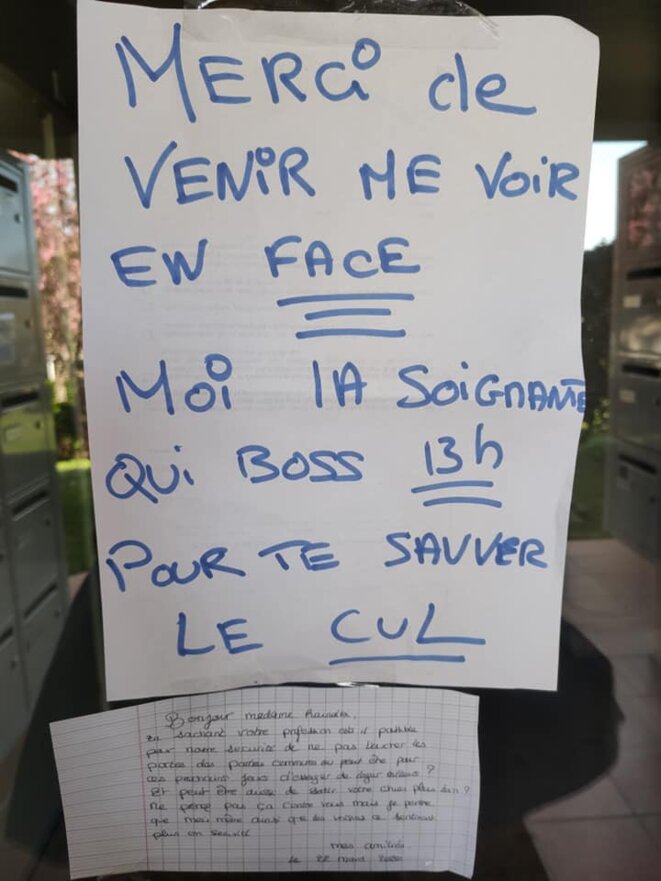 MERCi de
VENIR ME VOIR
EN FACE
MOi LA SOiGNANTE
QUi BOSS 13h
POUR TE SAUVER
LE CUL
Bonjour madame
En sachant votre profession est il possible
pour notre sécurité de ne pas toucher les
portes des parties communes ou peut être pour
ces prochains jours d'essayer de loger ailleurs ?
Et peut être aussi de sortir votre chien plus loin ?
Ne prenez pas ça contre vous mais je pense
que moi même ainsi que les voisins se
plus en sécurité
mes amitiés
le 22 mars 2020